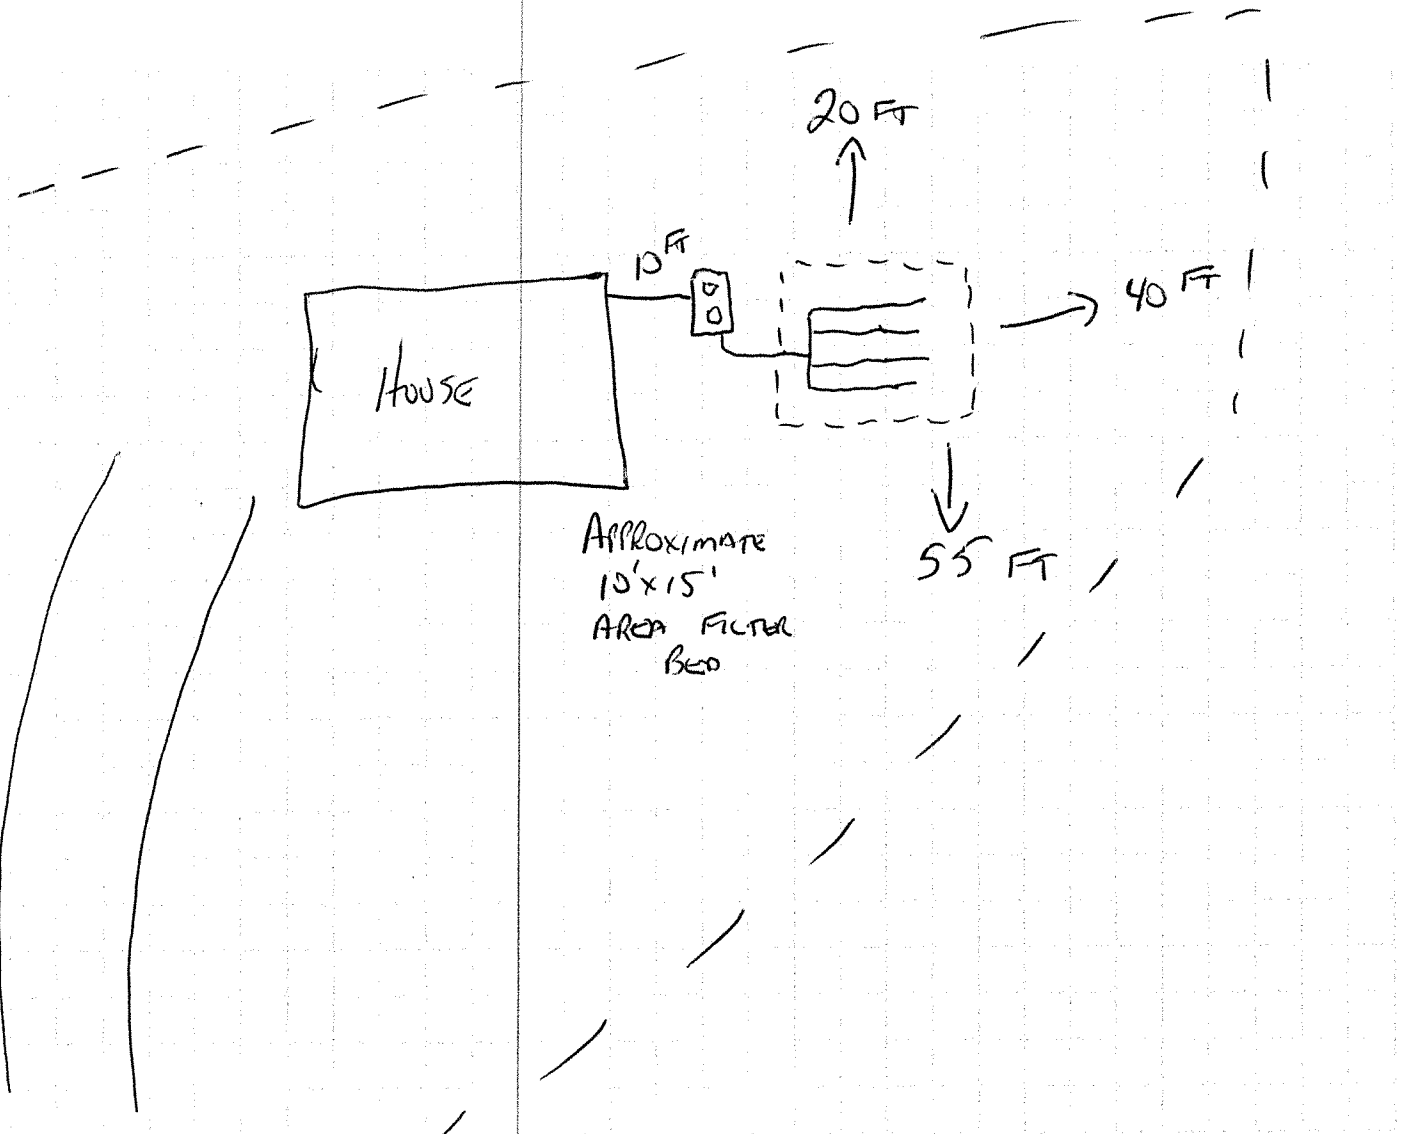 20 FT
10 FT
40 FT
HOUSE
55 FT
APPROXIMATE
10'x15'
AREA FILTER
BED